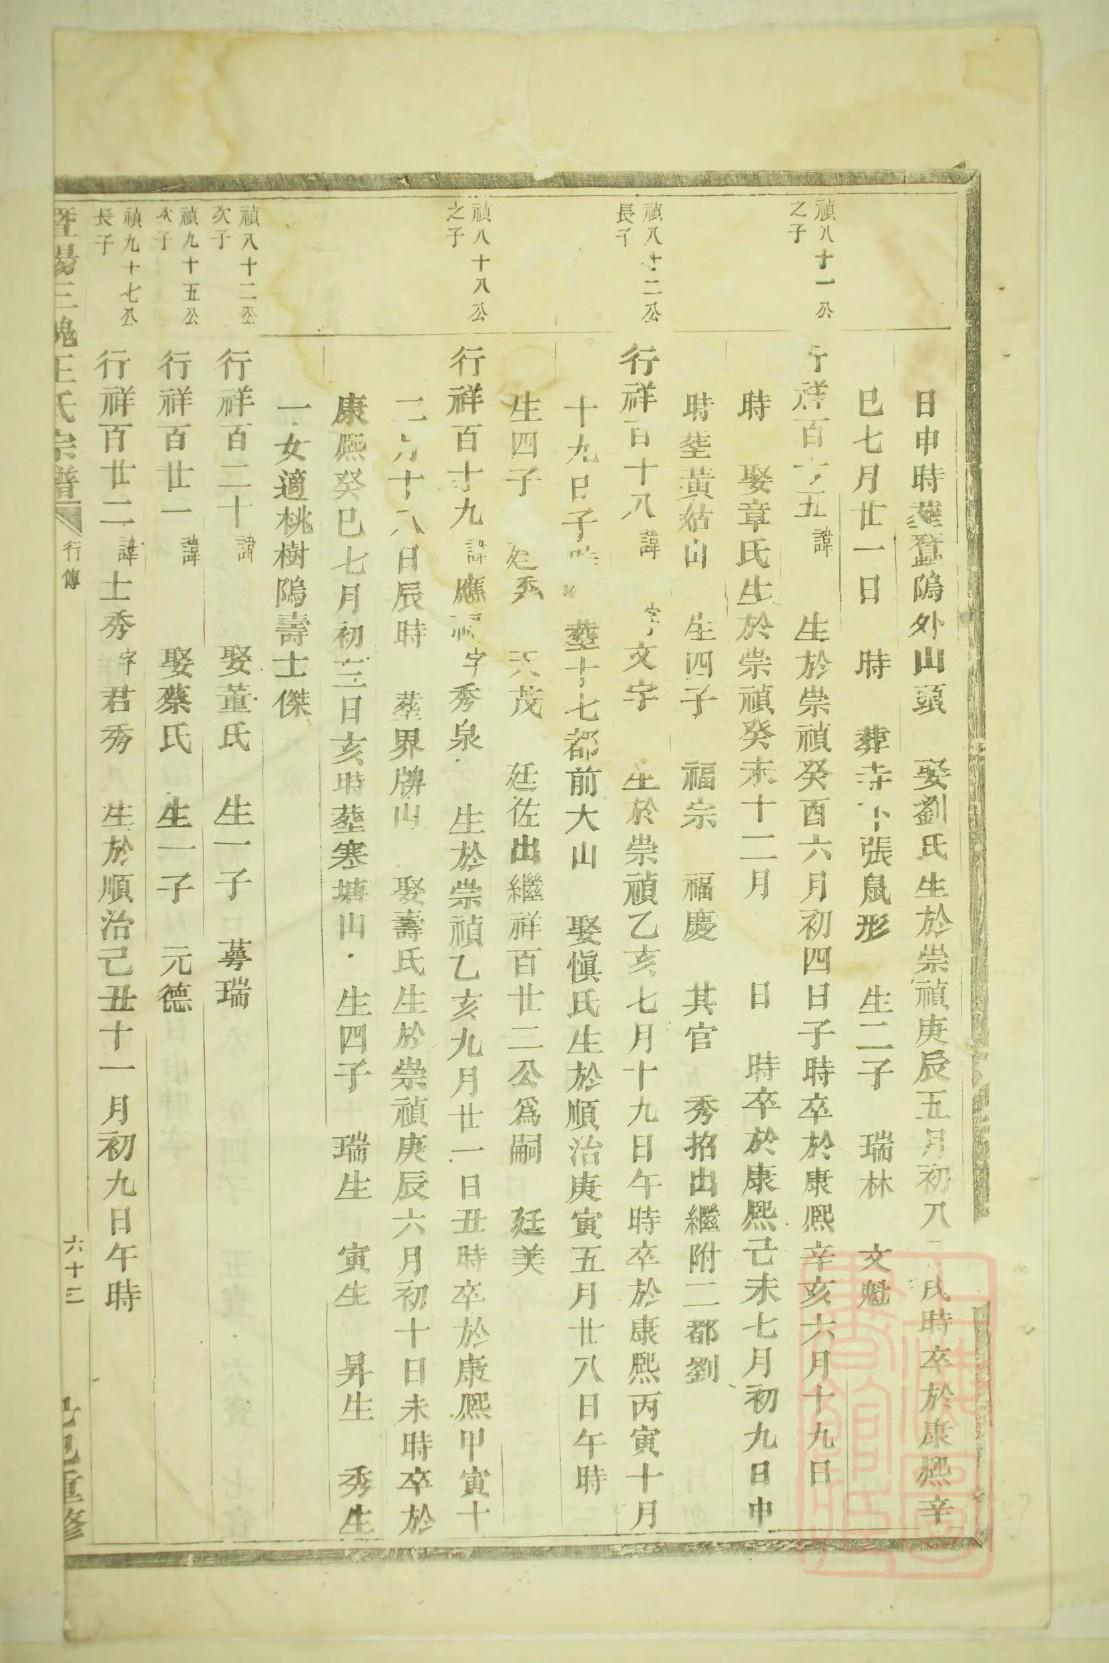 日申時塟蠶隖外山頭　娶劉氏生於崇禎庚辰五月初八日戌時卒於康熙辛
巳七月廿一日　時　葬寺下張鼠形　生二子　瑞林　文魁
禎八十一公
之子
行祥百十五諱　生於崇禎癸酉六月初四日子時卒於康熙辛亥六月十九日
時　娶章氏生於崇禎癸未十二月　日　時卒於康熙己未七月初九日申
時塟黃姑山　生四子　福宗　福慶　其官　秀招出繼附二都劉
禎八十二公
長子
行祥百十八諱　字文宇　生於崇禎乙亥七月十九日午時卒於康熙丙寅十月
十九日子時　塟十七都前大山　娶愼氏生於順治庚寅五月廿八日午時
生四子　廷秀　天茂　廷佐出繼祥百廿二公爲嗣　廷美
禎八十八公
之子
行祥百十九諱應　字秀泉　生於崇禎乙亥九月廿一日丑時卒於康熙甲寅十
二月十八日辰時　塟界牌山　娶壽氏生於崇禎庚辰六月初十日未時卒於
康熙癸巳七月初三日亥時塟寒塘山　生四子　瑞生　寅生　昇生　秀生
一女適桃樹隖壽士傑
禎八十二公
次子
行祥百二十諱　娶董氏　生一子　蕚瑞
禎九十五公
次子
行祥百廿一諱　娶蔡氏　生一子　元德
禎九十七公
長子
行祥百廿二諱士秀字君秀　生於順治己丑十一月初九日午時
暨陽三槐王氏宗譜　行傳　六十二　己巳重修